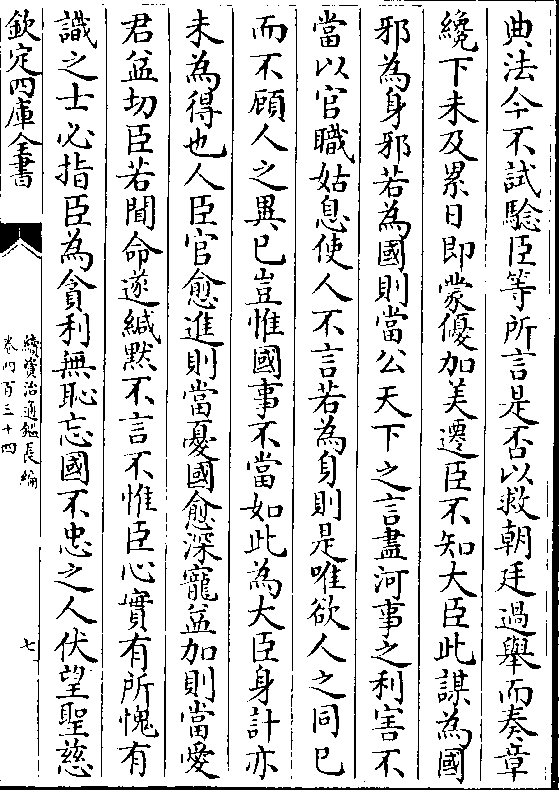 典法今不試驗臣等所言是否以救朝廷過舉而奏章
纔下未及累日即蒙優加美遷臣不知大臣此謀為國
邪為身邪若為國則當公天下之言盡河事之利害不
當以官職姑息使人不言若為身則是唯欲人之同已
而不顧人之異已豈惟國事不當如此為大臣身計亦
未為得也人臣官愈進則當憂國愈深寵益加則當愛
君益切臣若聞命遂緘默不言不惟臣心實有所愧有
識之士必指臣為貪利無恥忘國不忠之人伏望聖慈
欽定四庫全書
續資治通鑑長編
卷四百三十四
七